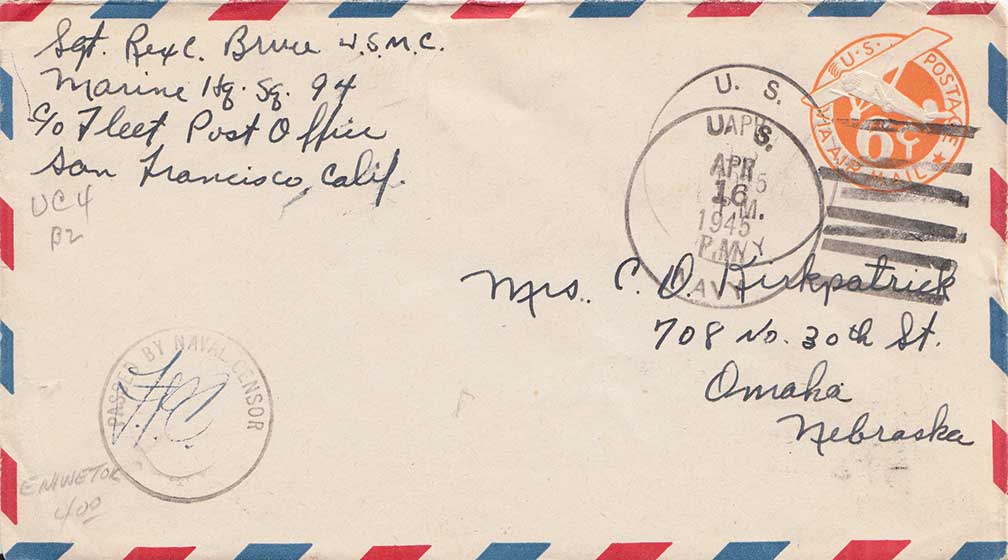 Sgt. Rex C. Bruce U.S.M.C.
Marine Hq. Sq. 94
C/o Fleet Post Office
San Francisco, Calif.
UC4
B2
U.S. POSTAGE
6¢
VIA AIR MAIL
U. S.
U. S.
APR
16
1945
P.M.
NAVY
Mrs. C. O. Kirkpatrick
708 No. 30th St.
Omaha
Nebraska
PASSED BY NAVAL CENSOR
ENIWETOK
400